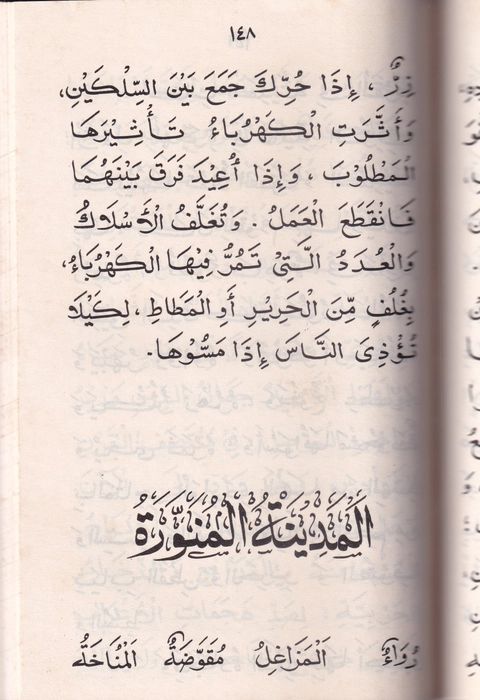 ١٤٨
زِرٌّ ، إِذَا حُرِّكَ جَمَعَ بَيْنَ السِّلْكَيْنِ،
وَأَثَّرَتِ الْكَهْرُبَاءُ تَأْثِيْرَهَا
الْمَطْلُوْبَ ، وَإِذَا أُعِيْدَ فَرَقَ بَيْنَهُمَا
فَانْقَطَعَ الْعَمَلُ . وَتُغَلَّفُ الْأَسْلَاكُ
وَالْعُدَدُ الَّتِيْ تَمُرُّ فِيْهَا الْكَهْرُبَاءُ،
بِغُلُفٍ مِّنَ الْحَرِيْرِ أَوِ الْمَطَاطِ ، لِكَيْلَا
تُؤْذِىَ النَّاسَ إِذَا مَسُّوْهَا.
اَلْمَدِيْنَةُ الْمُنَوَّرَةُ
رُوَاءٌ اَلْمَزَاغِلُ مُقَوَّضَةٌ اَلْمُنَاخَةُ